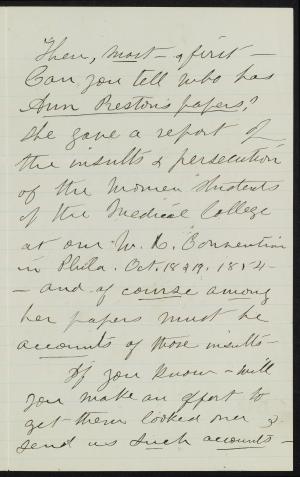 Then, most - & first -
Can you tell who has
Ann Preston's papers?
She gave a report of
the insults & persecution
of the Women Students
of the Medical College
at our W. R. Convention
in Phila. Oct. 18 & 19. 1854 -
- and of course among
her papers must be
accounts of those insults -
If you know - will
you make an effort to
get them looked over &
send us such accounts -